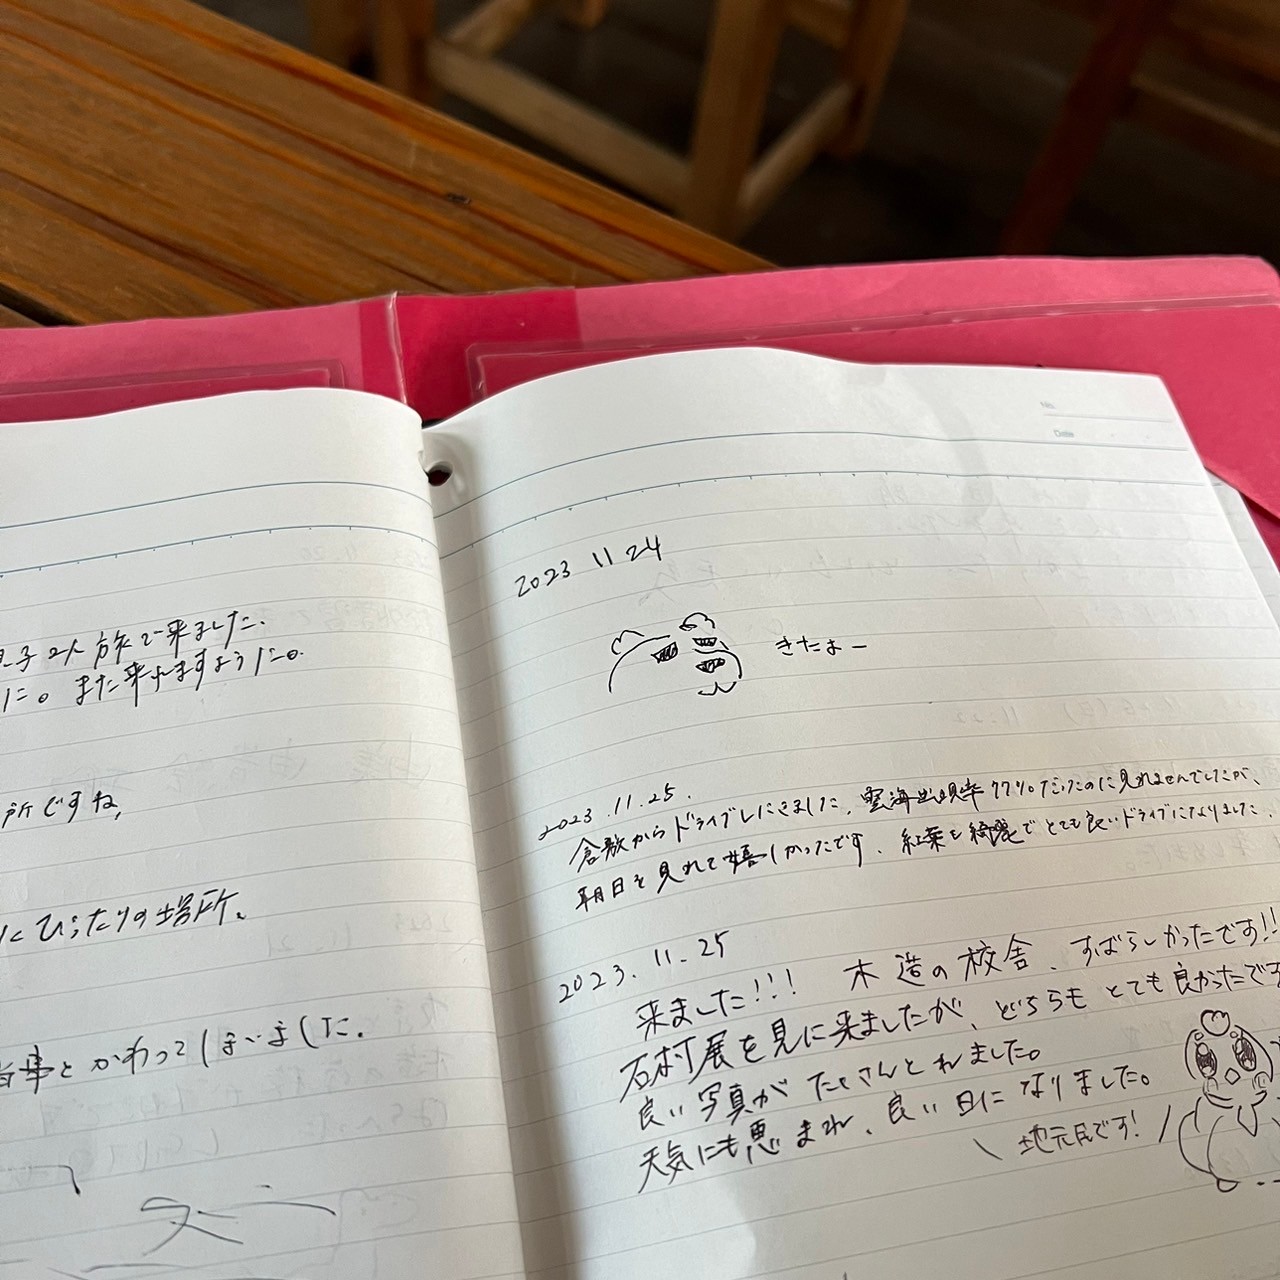 子2人旅で来ました.
に。また来れますように。
所ですね,
にぴったりの場所、
とかわってしまいました.
No.
Date
2023 11 24
きたよー
2023.11.25.
倉敷からドライブしにきました. 雲海出現率77%だったのに見れませんでしたが、
朝日を見れて嬉しかったです、紅葉も綺麗でとても良いドライブになりました.
2023.11.25
来ました!!! 木造の校舎、すばらしかったです!!
石村展を見に来ましたが、どちらもとても良かったです
良い写真がたくさんとれました。
天気にも恵まれ、良い日になりました。
地元民です!